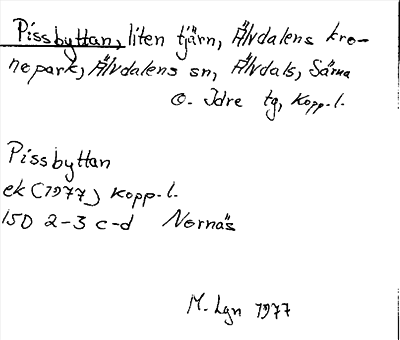 Pissbyttan, liten tjärn, Älvdalens kro-
nopark, Älvdalens sn, Älvdals, Särna
o. Idre tg, Kopp. l.
Pissbyttan
ek (1977) Kopp. l.
15D 2-3 c-d Nornäs
M. Lgn 1977